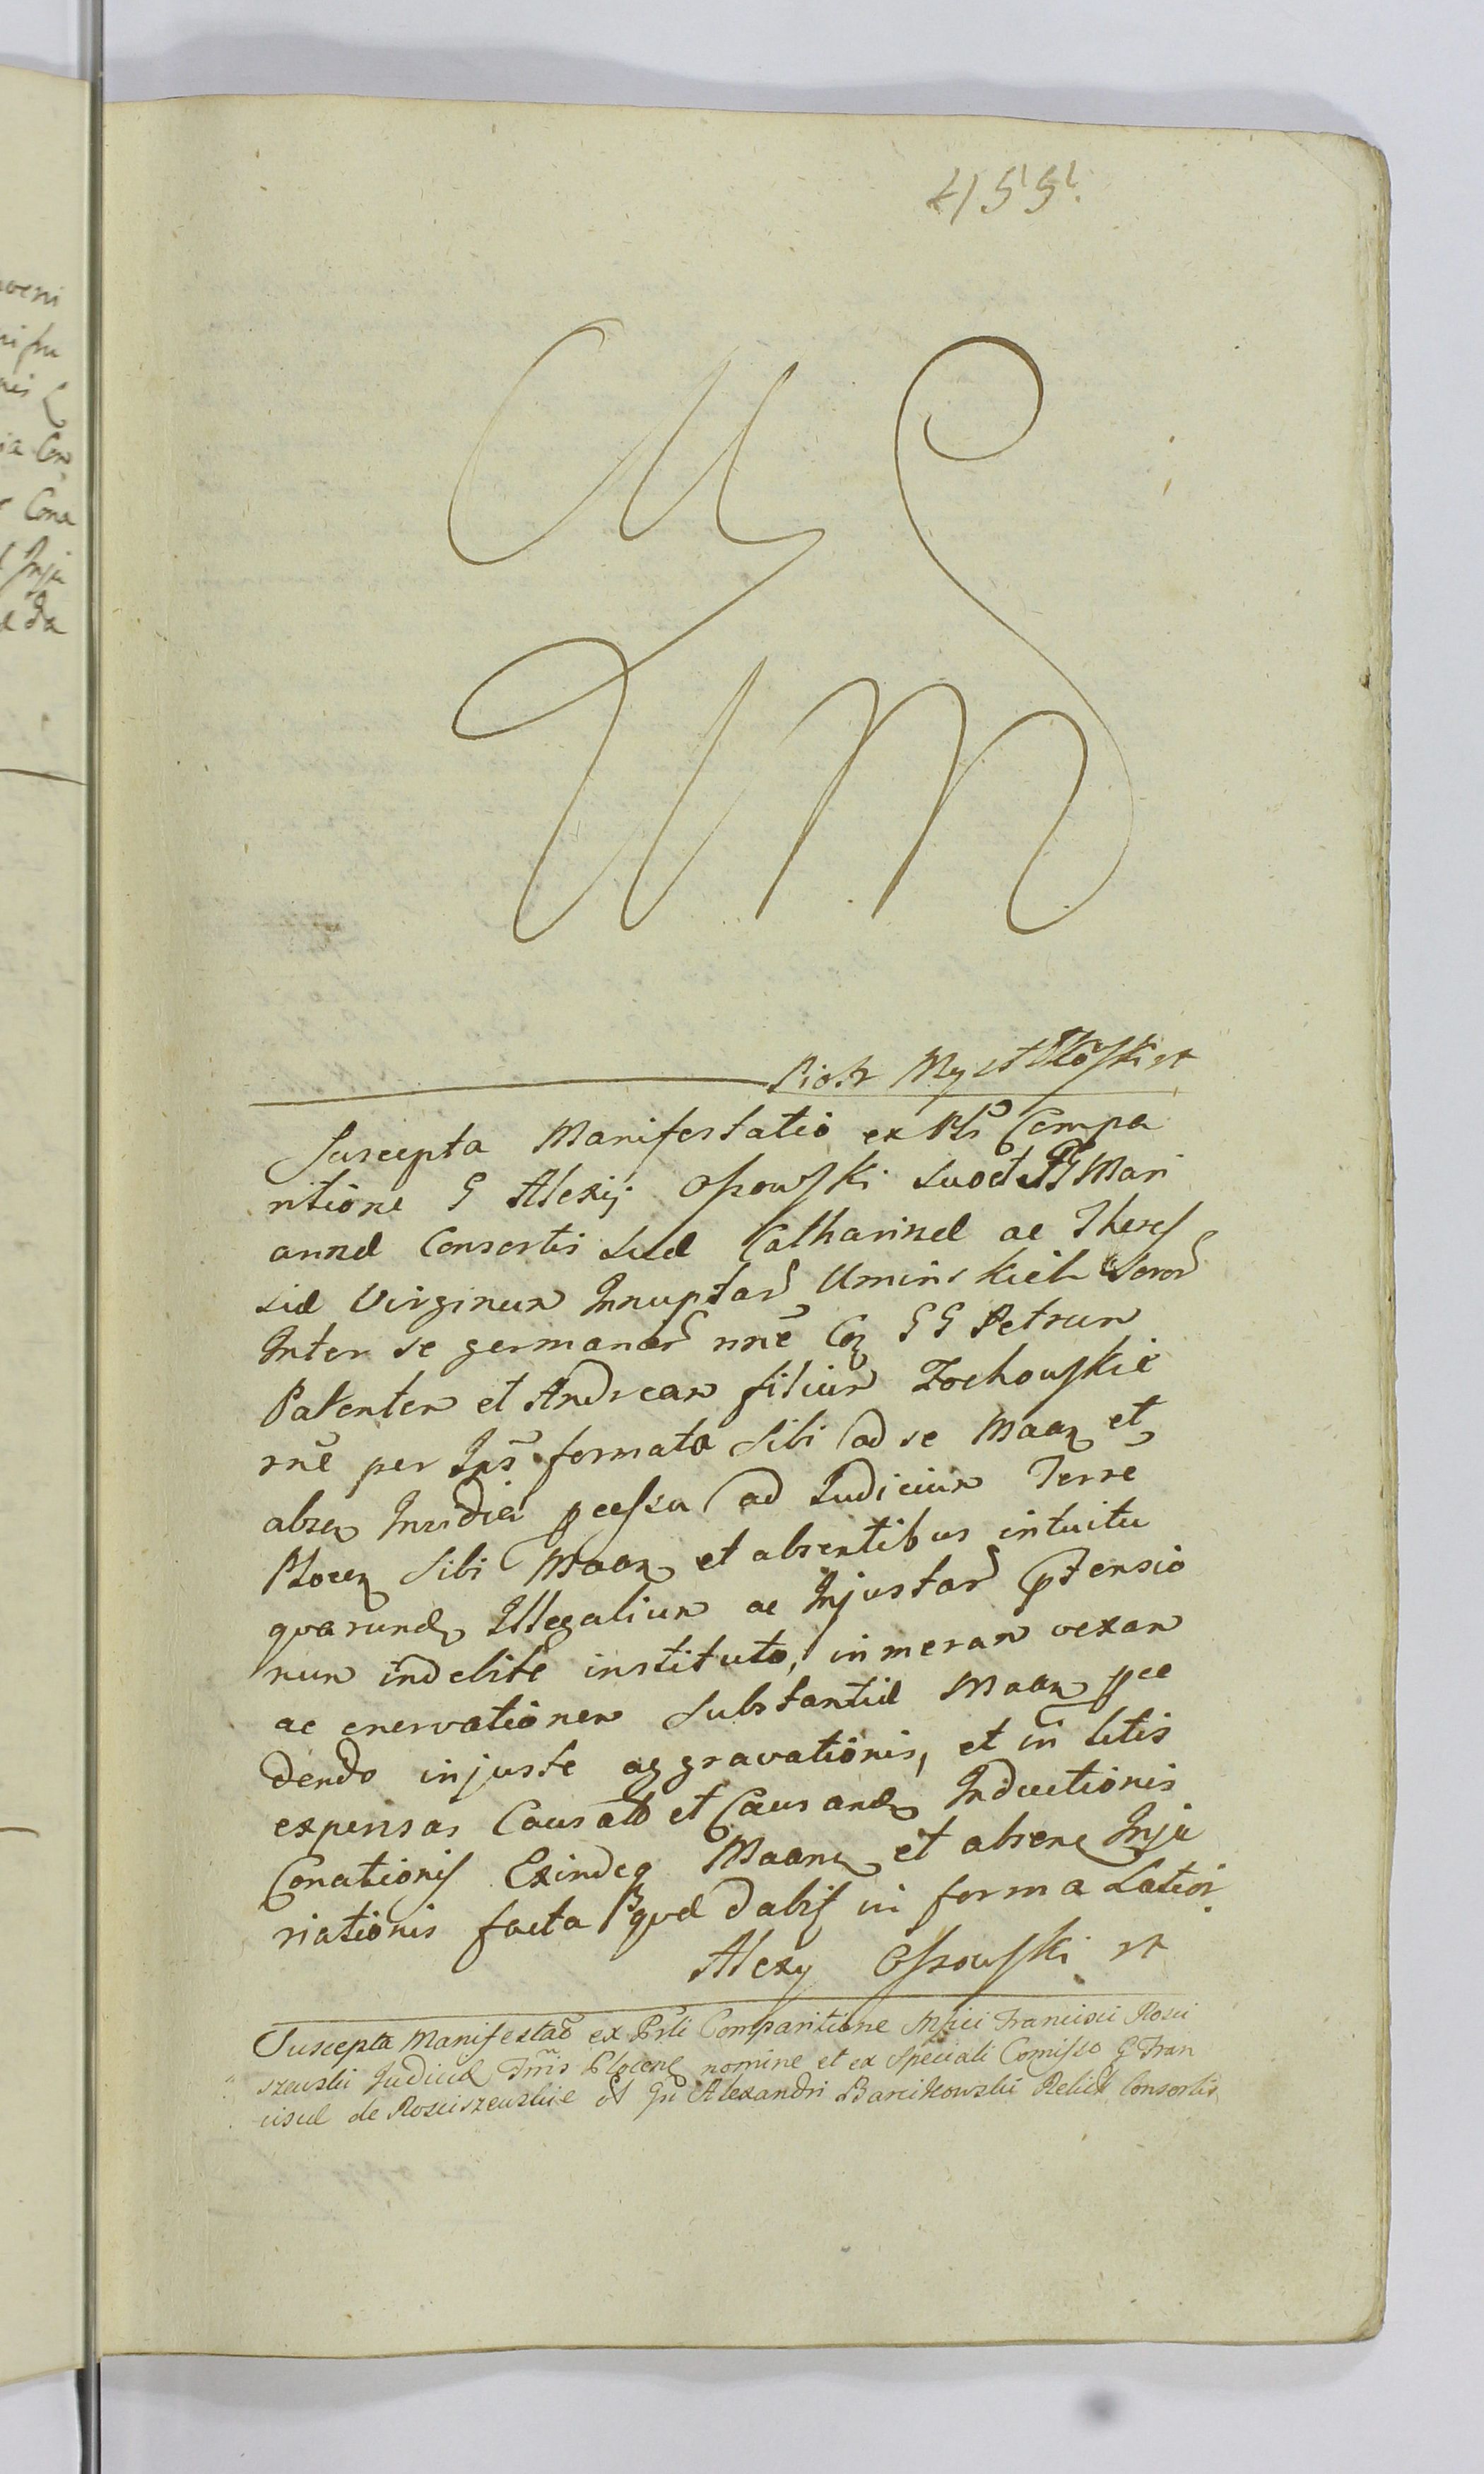 455.
Piotr Mystkowski
Suscepta Manifestatio ex Psli Compa
ritione G Alexij Ossowski suo et GG Mari
annæ Consortis suæ Catharinæ ac There
siæ Virginum Innuptar Uminskich Soror
Inter se germanar nne Cq GG Petrum
Patentem et Andream filium Zochowskie
rne per Ips formata sibi ad se Maan et
absen Insidia pcessu ad Judicium Terre
Plocen sibi Maan et absentibus intuitu
quarund Illegalium ac Injustar ptensio
num indebite instituto, in meram vexam
ac enervationem substantiæ Maan pce
dendo injuste aggravationis, et in litis
expensas Causat et Causand Inductionis
Conationis Exindeq Maane et absene Inju
riationis facta quæ dabit in forma Latior
Alexy Ossowski
Suscepta Manifestao ex Prsli Comparitione Mfici Francisci Rosci
szewski Judicis Trris Plocens nomine et ex speciali Comisso G Fran
ciscæ de Rosciszewskie Alexandri Barcikowski Relictæ Consortis
veni
ia Con
Cona
Inju